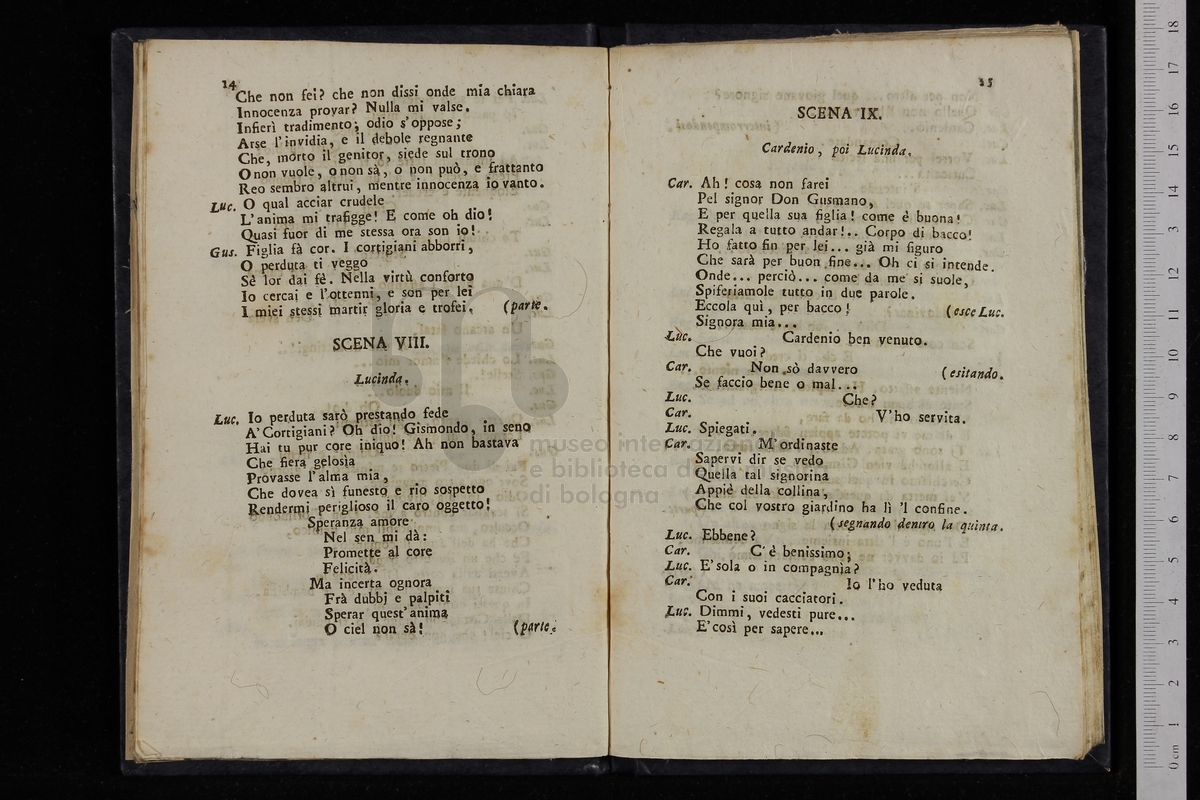 14
Che non fei? che non dissi onde mia chiara
Innocenza provar? Nulla mi valse.
Infierì tradimento; odio s'oppose;
Arse l'invidia, e il debole regnante
Che, morto il genitor, siede sul trono
O non vuole, o non sà, o non può, e frattanto
Reo sembro altrui, mentre innocenza io vanto.
Luc. O qual acciar crudele
L'anima mi trafigge! E come oh dio!
Quasi fuor di me stessa ora son io!
Gus. Figlia fà cor. I cortigiani abborri,
O perduta ti veggo
Sè lor dai fè. Nella virtù conforto
Io cercai e l'ottenni, e son per lei
I miei stessi martir gloria e trofei. (parte.
SCENA VIII.
Lucinda.
Luc. Io perduta sarò prestando fede
A' Cortigiani? Oh dio! Gismondo, in seno
Hai tu pur core iniquo! Ah non bastava
Che fiera gelosia
Provasse l'alma mia,
Che dovea sì funesto e rio sospetto
Rendermi periglioso il caro oggetto!
Speranza amore
Nel sen mi dà:
Promette al core
Felicità.
Ma incerta ognora
Frà dubbj e palpiti
Sperar quest'anima
O ciel non sà! (parte.
15
SCENA IX.
Cardenio, poi Lucinda.
Car. Ah! cosa non farei
Pel signor Don Gusmano,
E per quella sua figlia! come è buona!
Regala a tutto andar!.. Corpo di bacco!
Ho fatto fin per lei... già mi figuro
Che sarà per buon fine... Oh ci si intende.
Onde... perciò... come da me si suole,
Spiferiamole tutto in due parole.
Eccola quì, per bacco! (esce Luc.
Signora mia...
Luc. Cardenio ben venuto.
Che vuoi?
Car. Non sò davvero (esitando.
Se faccio bene o mal...
Luc. Che?
Car. V'ho servita.
Luc. Spiegati.
Car. M'ordinaste
Sapervi dir se vedo
Quella tal signorina
Appiè della collina,
Che col vostro giardino ha lì 'l confine.
(segnando dentro la quinta.
Luc. Ebbene?
Car. C'è benissimo;
Luc. E' sola o in compagnìa?
Car. Io l'ho veduta
Con i suoi cacciatori.
Luc. Dimmi, vedesti pure...
E' così per sapere...
museo internazionale
e biblioteca della
di bologna